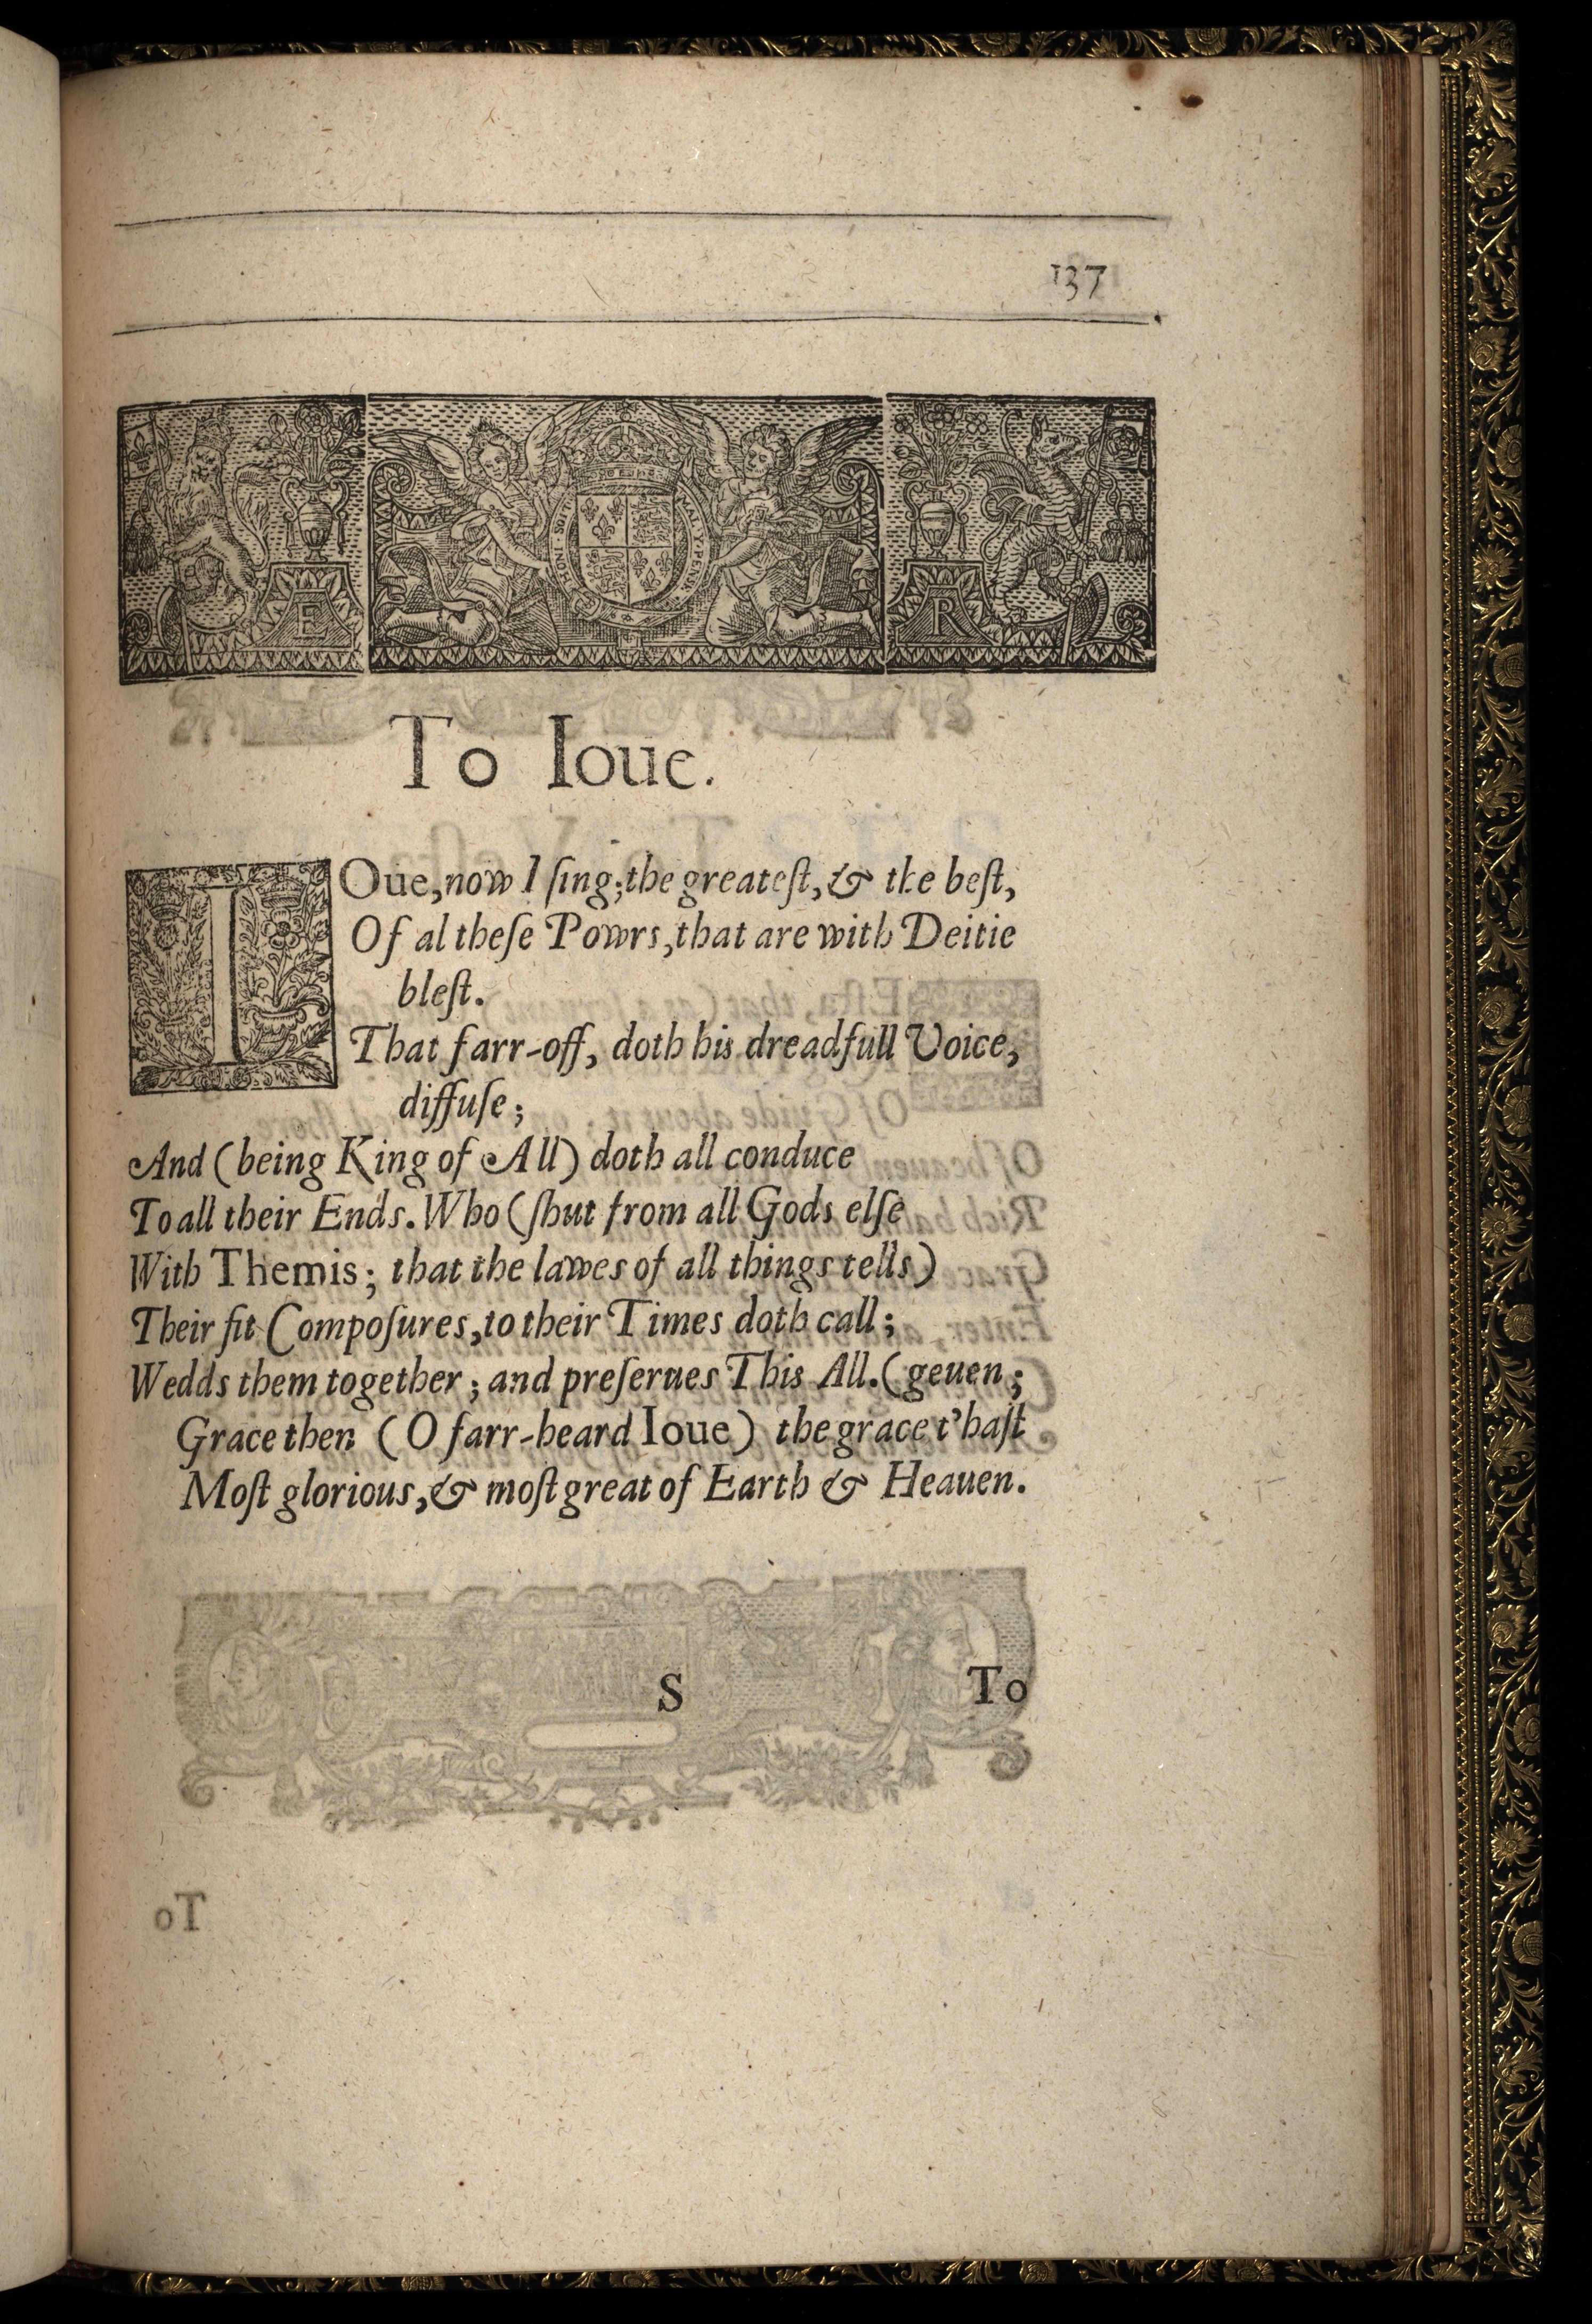 137
HONI · SOIT · QVI · MAL · Y · PENSE
E R
To Ioue.
IOue, now I ſing; the greateſt, & the beſt,
Of al theſe Powrs, that are with Deitie
bleſt.
That farr-off, doth his dreadfull Voice,
diffuſe;
And (being King of All) doth all conduce
To all their Ends. Who (ſhut from all Gods elſe
With Themis; that the lawes of all things tells)
Their fit Compoſures, to their Times doth call;
Wedds them together; and preſerues This All. (geuen;
Grace then (O farr-heard Ioue) the grace t'haſt
Moſt glorious, & moſt great of Earth & Heauen.
S To